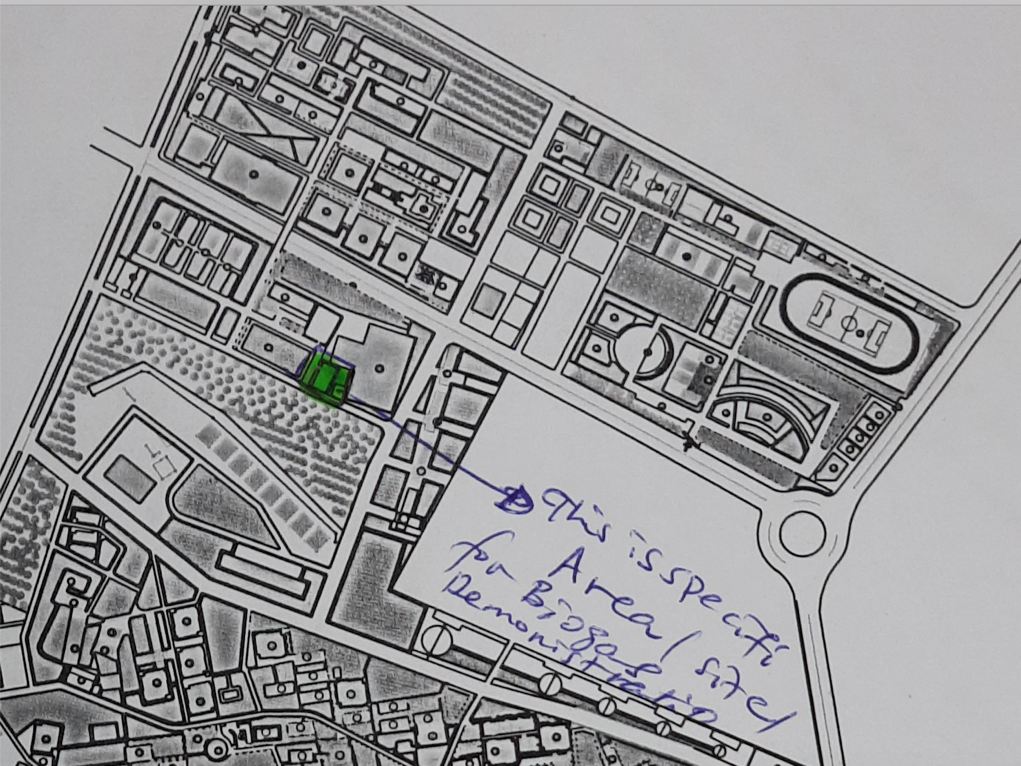 This is specifi
Area / site/
for Biogas
Demonistratio